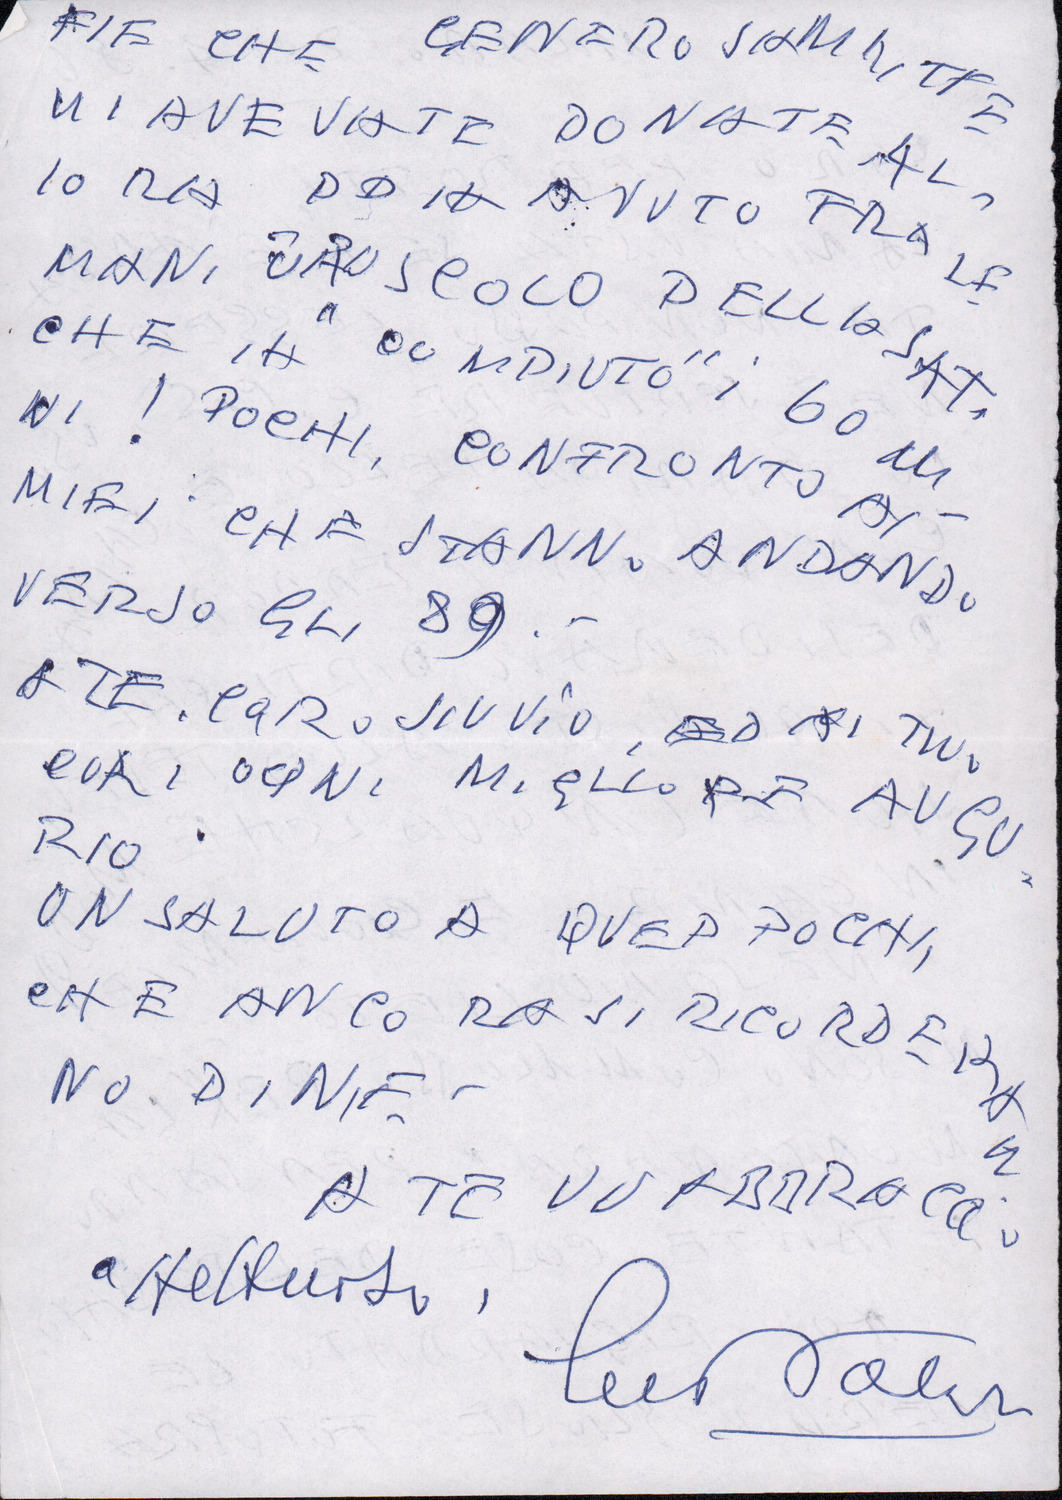 FIE CHE GENEROSAMENTE
MI AVEVATE DONATE AL,
LORA ED HA AVUTO FRA LE
MANI OPUSCOLO DELLA SAT,
CHE HA "COMPIUTO" i 60 AN
NI! POCHI, CONFRONTO AI -
MIEI CHE STANNO ANDANDO
VERSO GLI 89.-
A TE, CARO SILVIO, ED AI TUOI
CARI OGNI MIGLIORE AUGU,
RIO.
UN SALUTO A QUEI POCHI,
CHE ANCORA SI RICORDERAN
NO DI ME -
A TE UN ABBRACCIO
affettuoso,